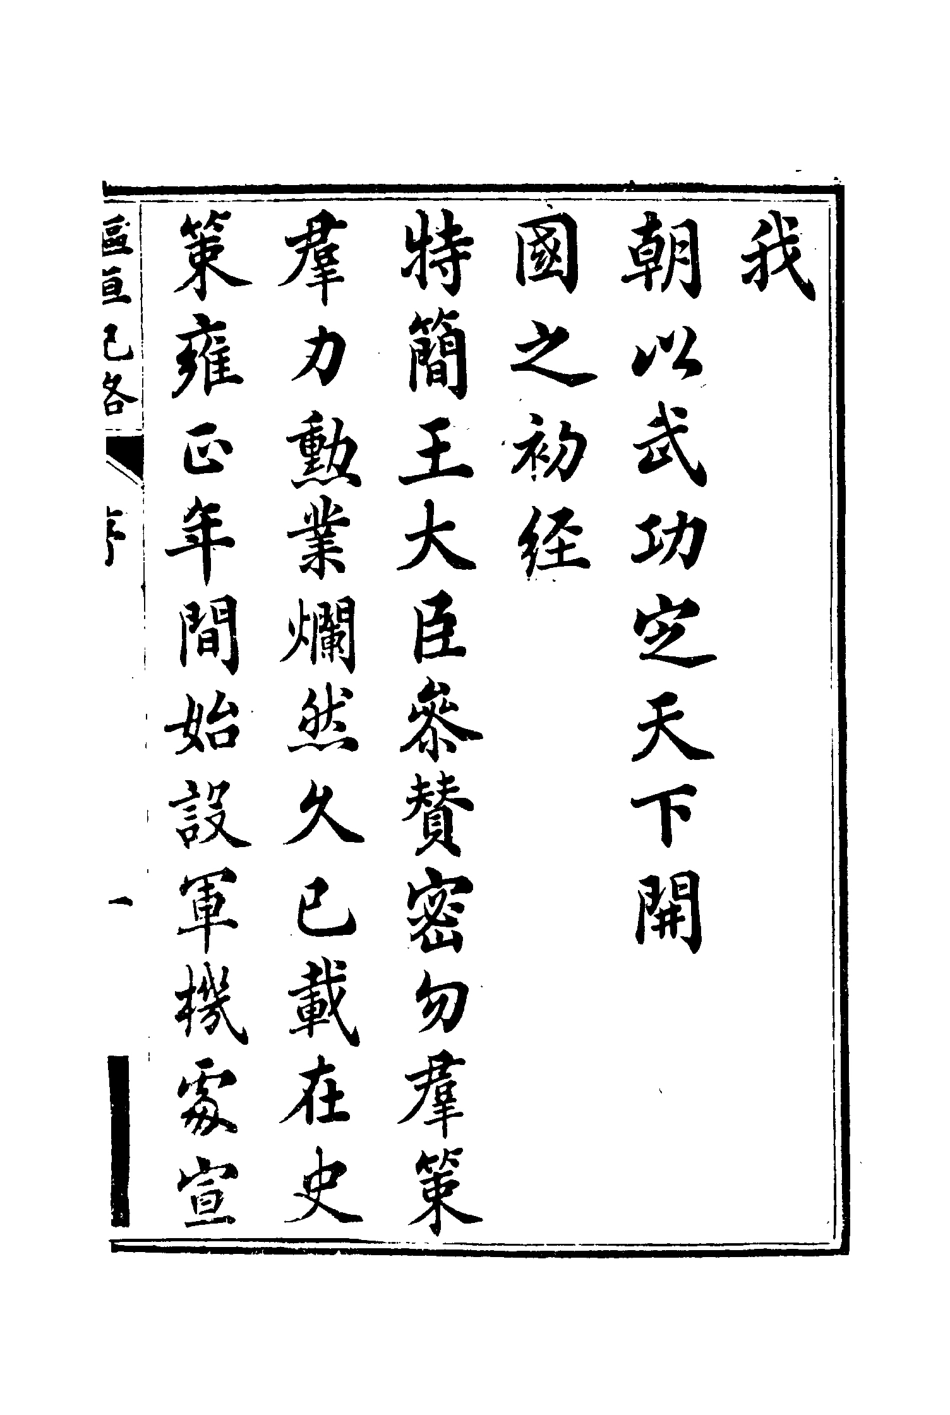 我
朝以武功定天下開
國之初経
特簡王大臣叅賛密勿羣策
羣力勳業爛然久已載在史
策雍正年間始設軍機處宣
樞垣記畧
序
一